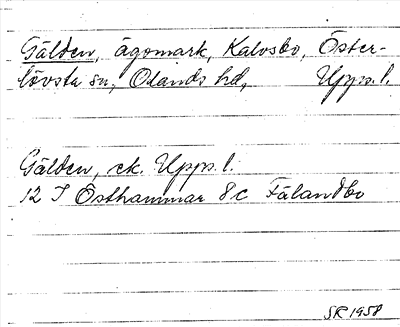 Gälden, ägomark, Kalvsbo, Öster-
lövsta sn, Olands hd, Upps. l.
Gälden, ek. Upps. l.
12 I Östhammar 8c Fälandbo
SR 1958